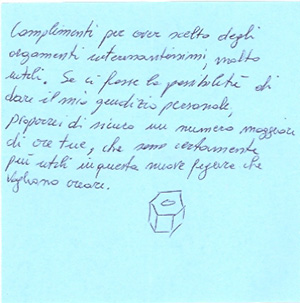 Complimenti per aver scelto degli
argomenti interessantissimi, molto
utili. Se ci fosse la possibilità di
dare il mio giudizio personale,
proporrei di sicuro un numero maggiore
di ore tue, che sono certamente
più utili in questa nuova figura che
vogliono creare.